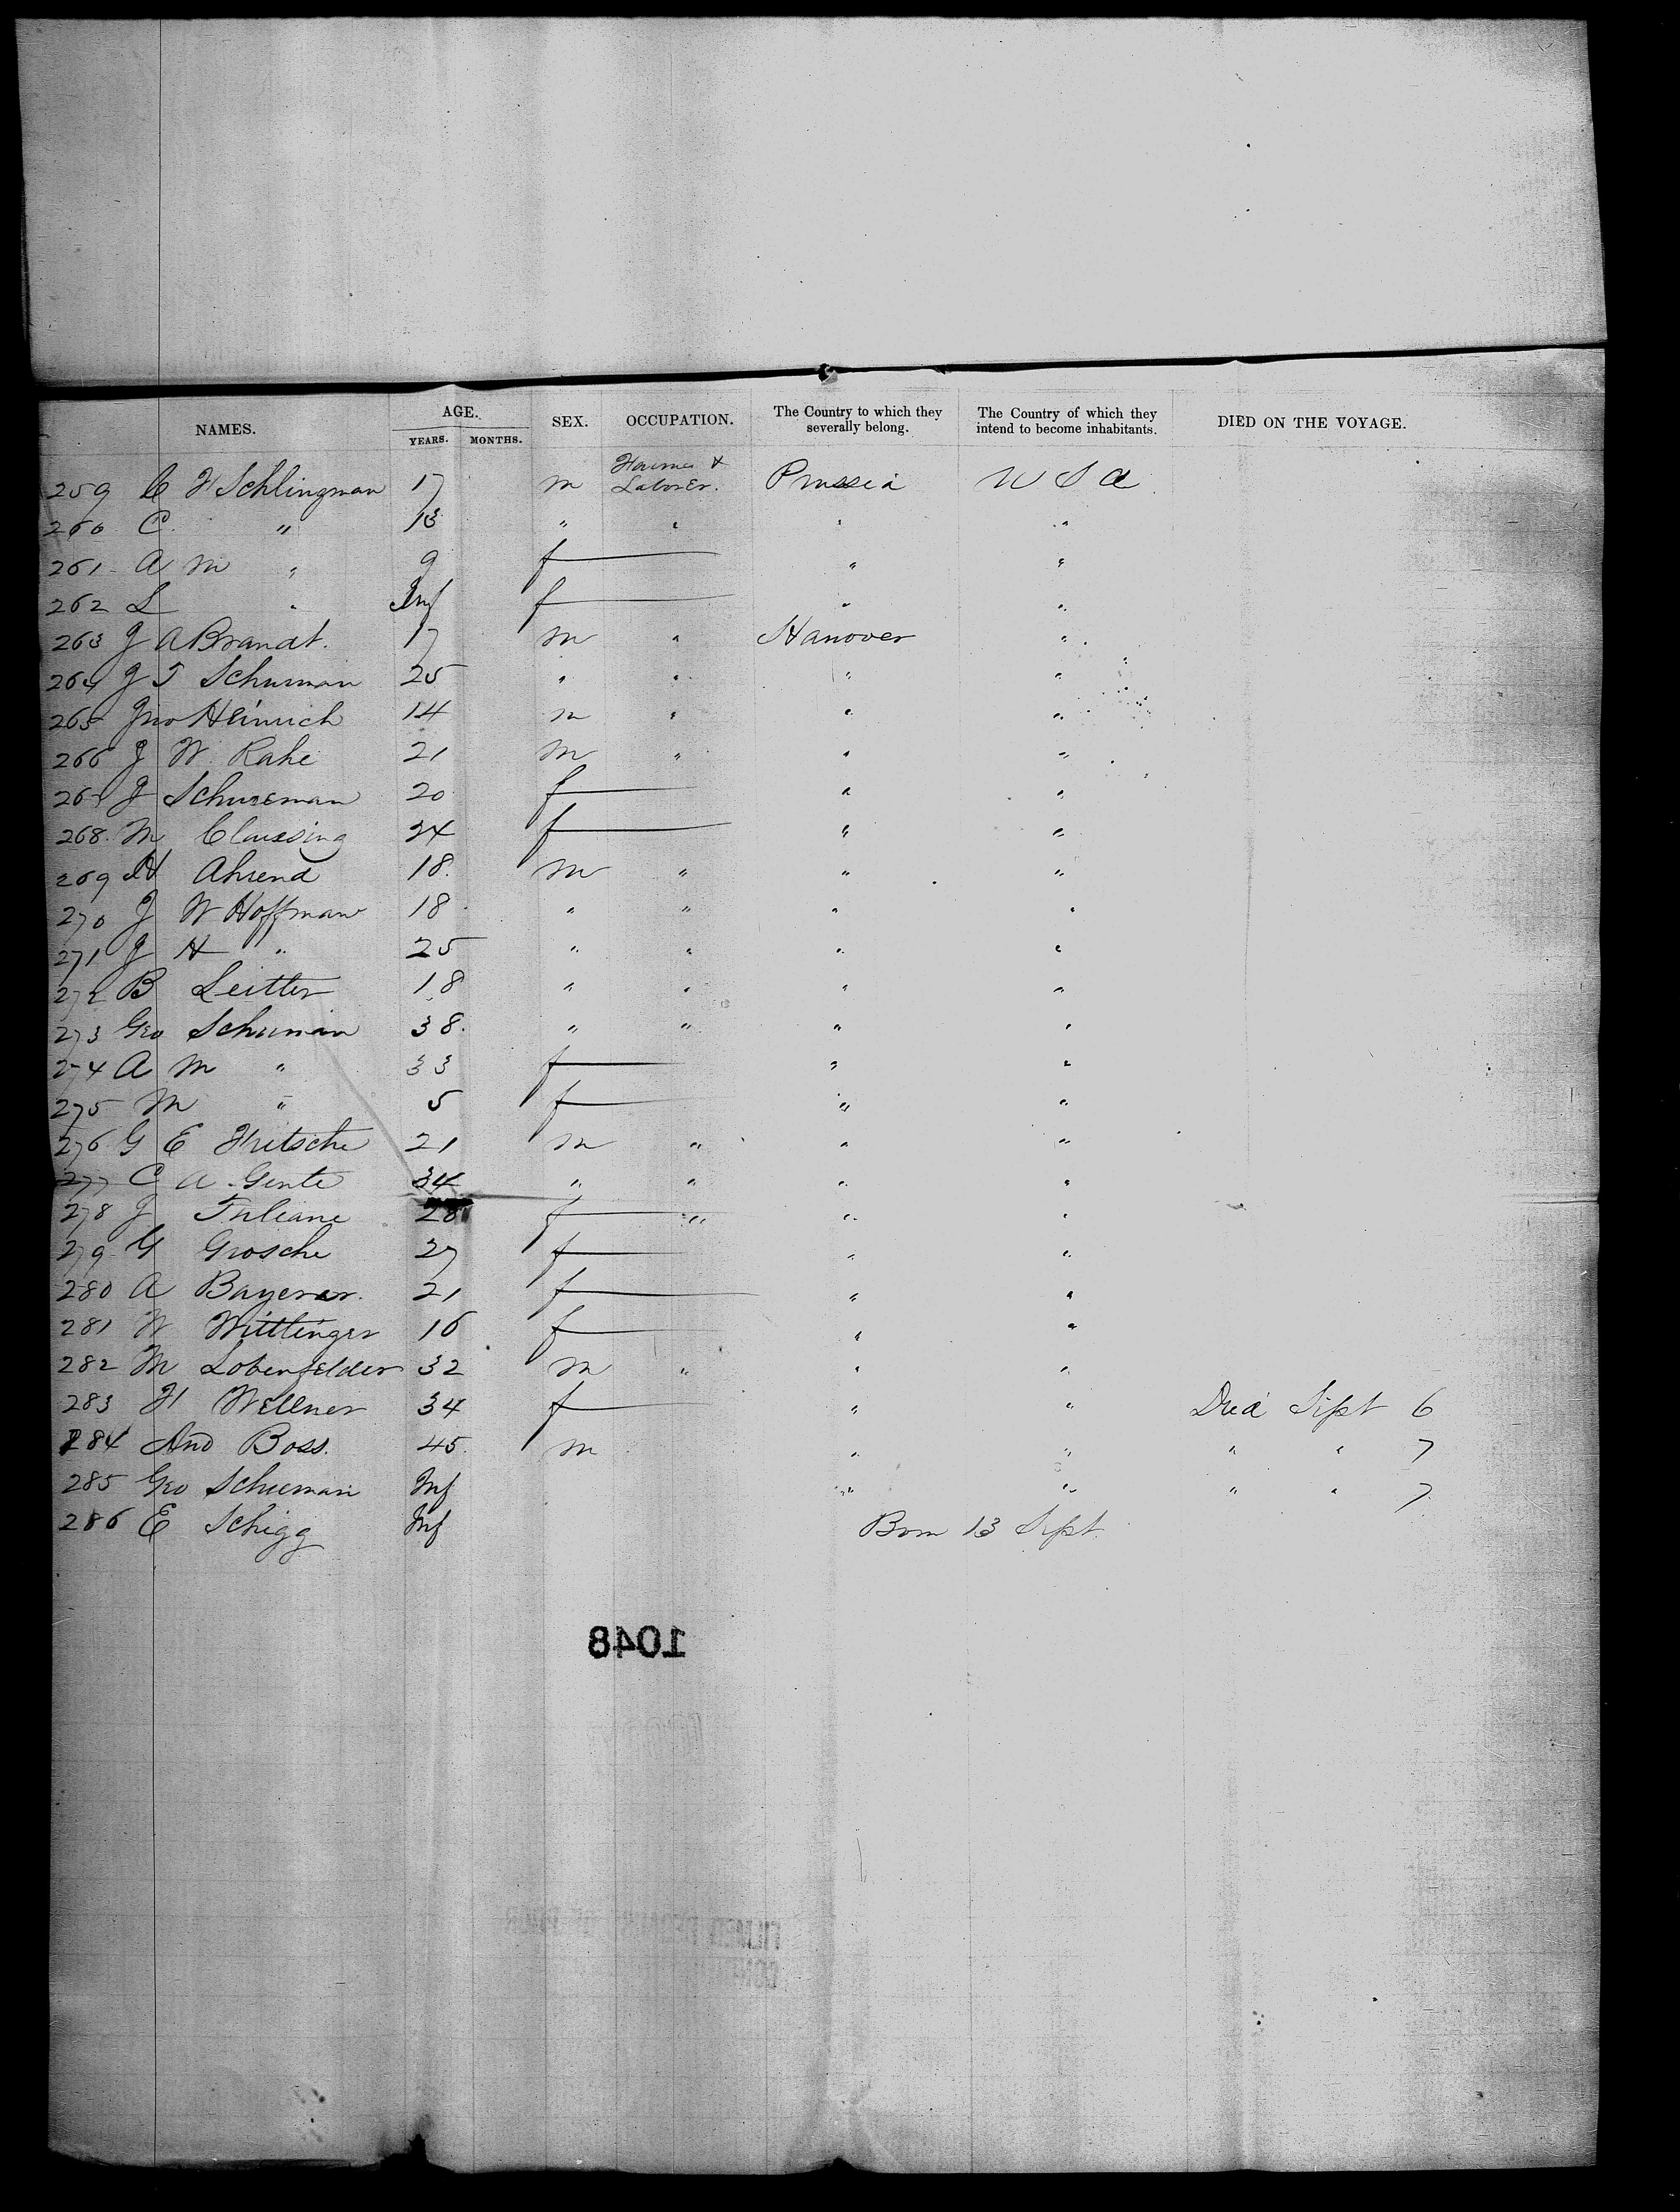 NAMES. AGE. SEX. OCCUPATION. The Country to which they severally belong. The Country of which they intend to become inhabitants. DIED ON THE VOYAGE.
YEARS. MONTHS.
259 C F Schlingman 17 m Farmer & Laborer. Prussia U S A
260 C. " 13 " " " "
261 A M " 9 f " "
262 L " Inf f " "
263 J A Brandt. 17 m " Hanover "
264 J T Schuman 25 " " " "
265 Jno Heinrich 14 m " " "
266 J W. Rahe 21 m " " "
267 J Schureman 20 f " "
268. M Claussing 24 f " "
269 H Ahrend 18. m " " "
270 J W Hoffman 18 " " " "
271 J H " 25 " " " "
272 B Leitter 18 " " " "
273 Geo Schuman 38. " " " "
274 A M " 33 f " "
275 M " 5 f " "
276 G E Fritsche 21 m " " "
277 C A Gente 34 " " " "
278 J Juliane 28 f " " "
279 G Grosche 27 f " "
280 A Bayerer. 21 f " "
281 W Wittlinger 16 f " "
282 M Lobenfelder 32 m " " "
283 F Wellner 34 f " " Died Sept 6
284 And Boss. 45. m " " " " 7
285 Geo Schueman Inf " " " " 7
286 E Schigg Inf Born 13 Sept.
1048